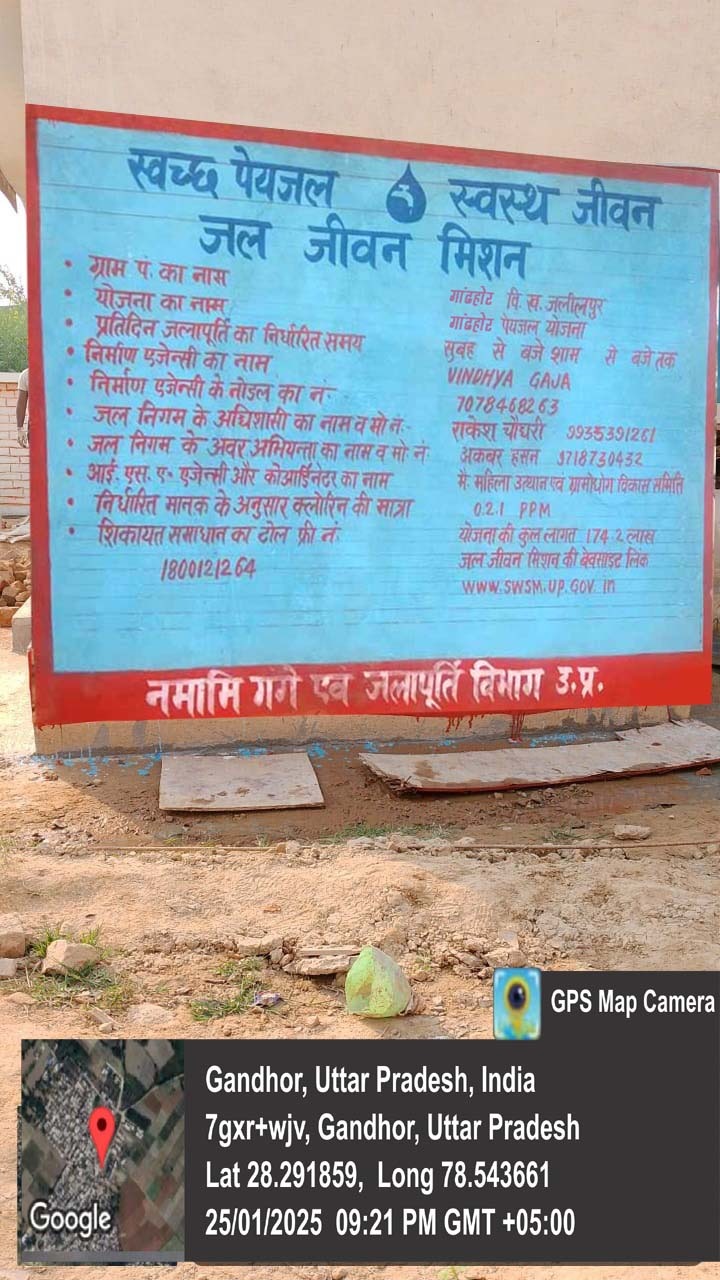 स्वच्छ पेयजल स्वस्थ जीवन
जल जीवन मिशन
• ग्राम पं. का नाम
• योजना का नाम
• प्रतिदिन जलापूर्ति का निर्धारित समय
• निर्माण एजेन्सी का नाम
• निर्माण एजेन्सी के नोडल का नं:
• जल निगम के अधिशासी का नाम व मो नं:
• जल निगम के अवर अभियन्ता का नाम व मो नं:
• आई. एस. ए. एजेन्सी और कोआर्डिनेटर का नाम
• निर्धारित मानक के अनुसार क्लोरिन की मात्रा
• शिकायत समाधान का टोल फ्री नं:
1800121264
गांढहोट वि.ख. जलीलपुर
गांढहोट पेयजल योजना
सुबह से बजे शाम से बजे तक
VINDHYA GAJA
7078468263
राकेश चौधरी 9935391261
अकबर हसन 9718730432
मै: महिला उत्थान एवं ग्रामोधोग विकास समिति
0.2.1 PPM
योजना की कुल लागत 174.2 लाख
जल जीवन मिशन की बेवसाइट लिंक
www.SWSM.UP.GOV.in
नमामि गंगे एवं जलापूर्ति विभाग उ.प्र.
GPS Map Camera
Gandhor, Uttar Pradesh, India
7gxr+wjv, Gandhor, Uttar Pradesh
Lat 28.291859, Long 78.543661
25/01/2025 09:21 PM GMT +05:00
Google